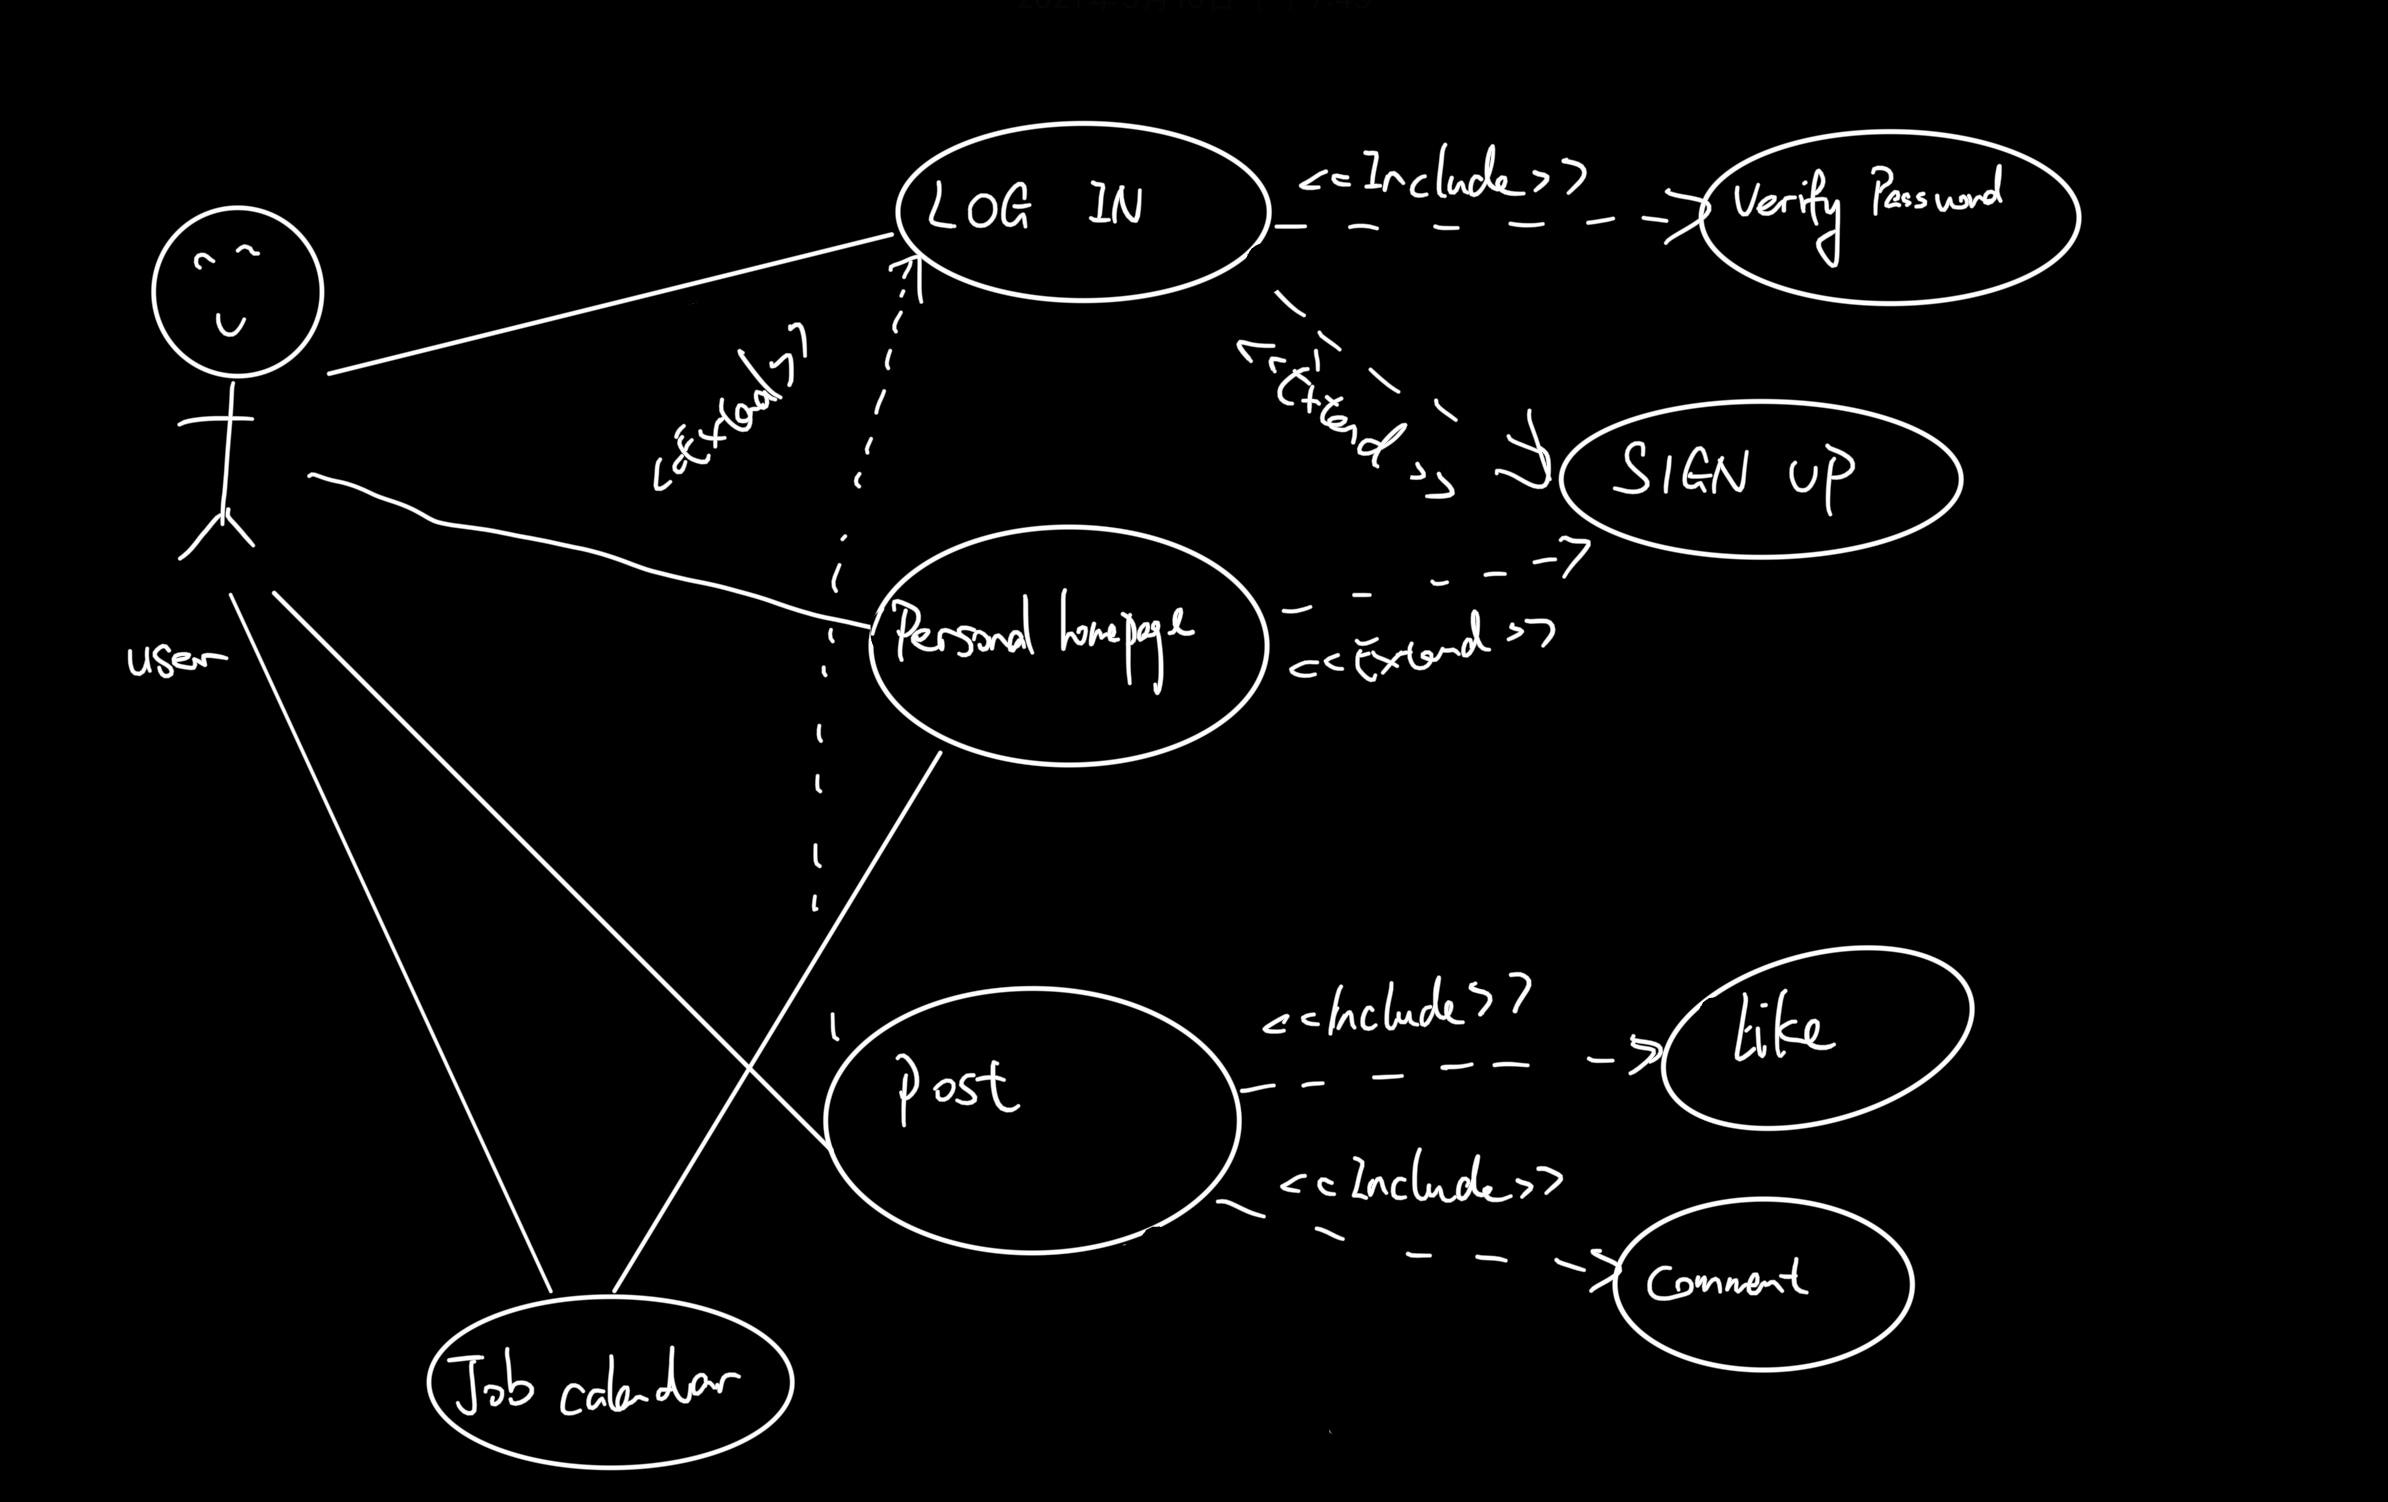 LOG IN
<<Include>>
Verify Password
<Extend>>
<<Extend>>
SIGN UP
user
Personal homepage
<<Extend>>
Post
<<Include>>
Like
<<Include>>
Comment
Job calendar